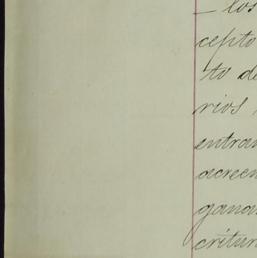 — los
cepto
to de
rios
entran
acreen
ganan
critur